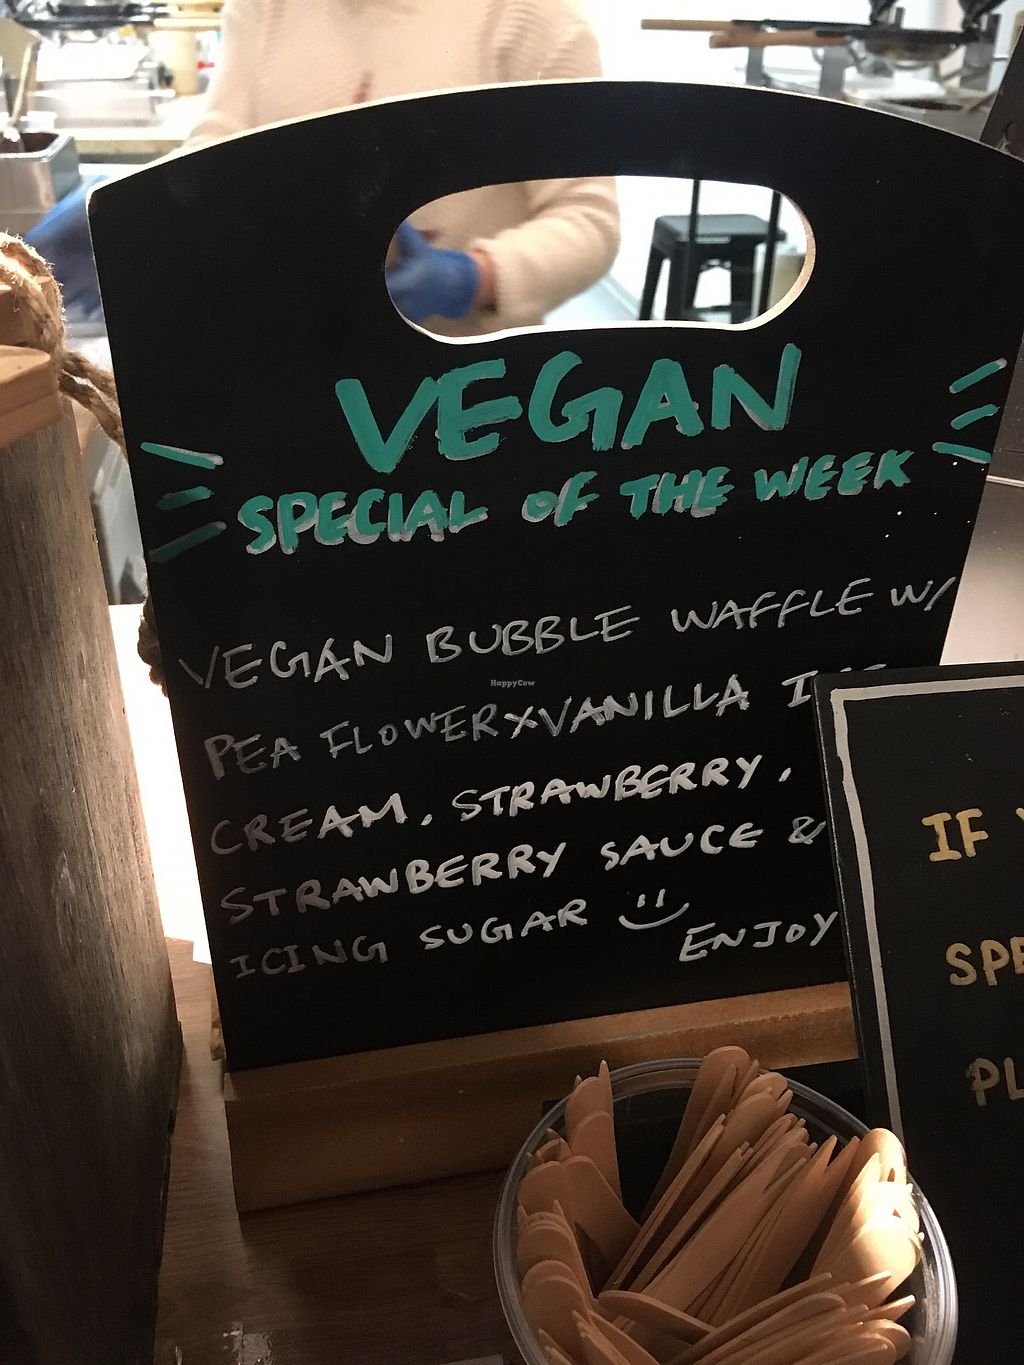 VEGAN
SPECIAL OF THE WEEK
VEGAN BUBBLE WAFFLE W/
PEA FLOWER X VANILLA
CREAM, STRAWBERRY,
STRAWBERRY SAUCE &
ICING SUGAR
ENJOY
HappyCow
IF